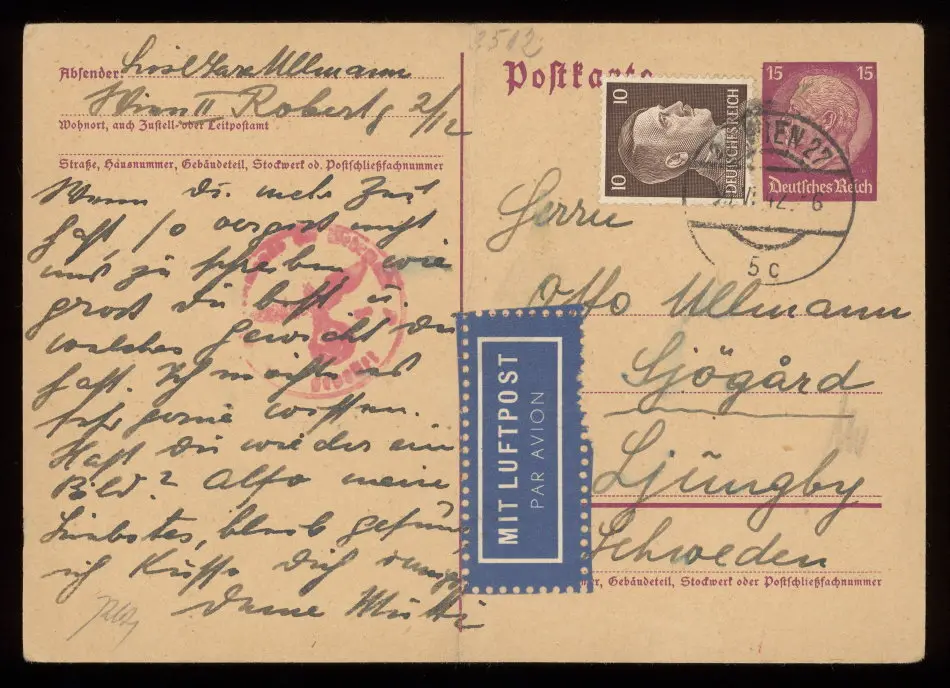 3502
Postkarte
15 15
Deutsches Reich
10 10
DEUTSCHES REICH
WIEN 27
42.
5 c
Absender: Ullmann
Wien II Robertg 2/12
Wohnort, auch Zustell- oder Leitpostamt
Straße, Hausnummer, Gebäudeteil, Stockwerk od. Postschließfachnummer
Wenn du mehr Zeit
hast, so vergiss nicht
uns zu schreiben, wie
gross du bist u.
welches Gewicht du
hast. Ich möchte es
sehr gerne wissen.
Hast du wieder ein
Bild? Also meine
Liebstes, bleib gesund
ich küsse dich
Deine Mutti
Herrn
Otto Ullmann
Sjögård
Ljungby
Schweden
MIT LUFTPOST
PAR AVION
Gebäudeteil, Stockwerk oder Postschließfachnummer